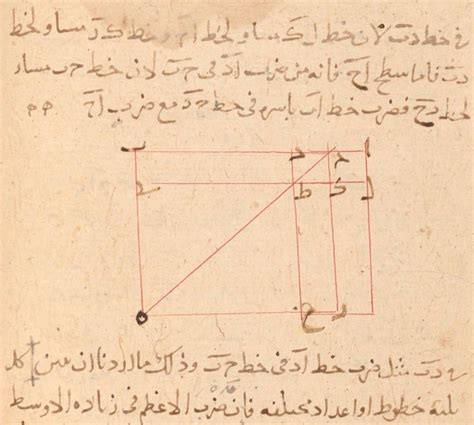 في خط دب لان خط ا ك مساو لخط ا م وخط ك د مساو لخط
دب فاما سطح ا ح فانه من ضرب ا د في ح ب لان خط ح ب مساو
لخط د ح فضرب خط ا ب باسره في خط ح د مع ضرب ا ح
ب د ح ا
ط ك
ح
ه
في دب مثل ضرب خط ا د في خط ح ب وذلك ما اردنا ان نبين
ثلثة خطوط او اعداد مختلفة فان ضرب الاعظم في زياده الاوسط